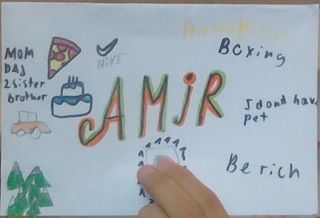 MOM
DAD
2 sister
brother
NIKE
Boxing
AMIR
I dont have
pet
Be rich